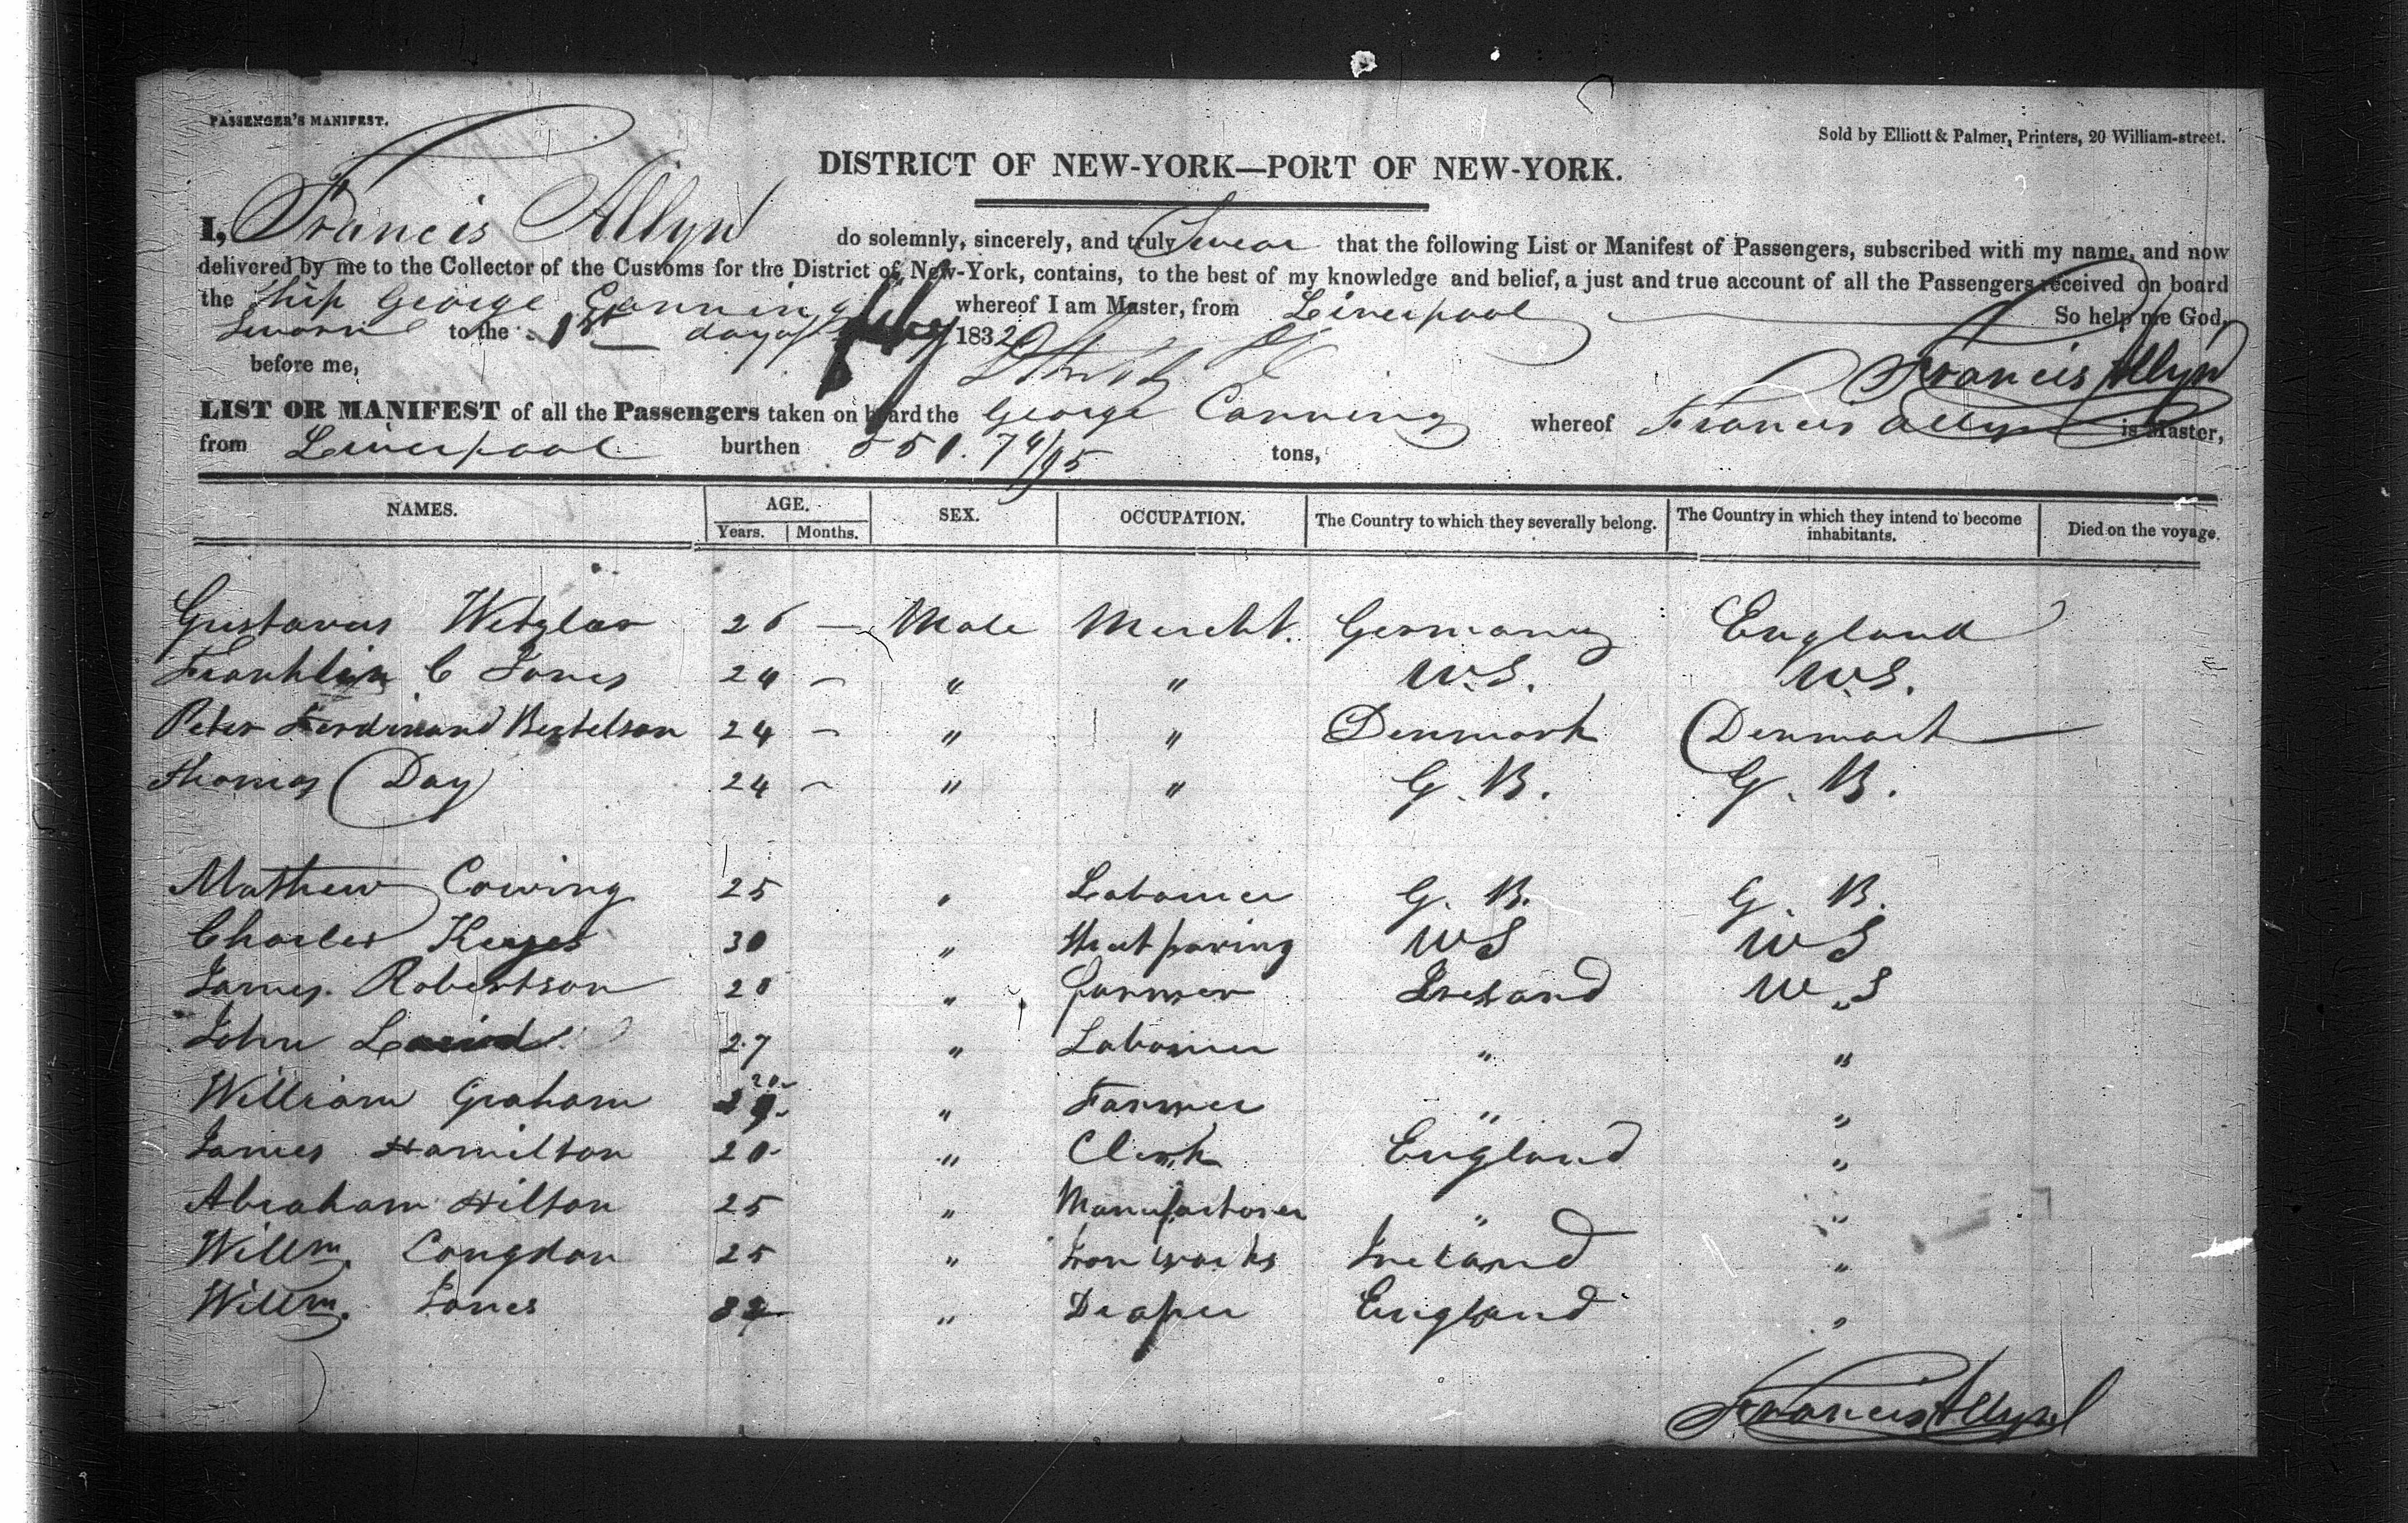 PASSENGER'S MANIFEST.
Sold by Elliott & Palmer, Printers, 20 William-street.
DISTRICT OF NEW-YORK—PORT OF NEW-YORK.
I, Francis Allyn do solemnly, sincerely, and truly Swear that the following List or Manifest of Passengers, subscribed with my name, and now
delivered by me to the Collector of the Customs for the District of New-York, contains, to the best of my knowledge and belief, a just and true account of all the Passengers received on board
the Ship George Canning whereof I am Master, from Liverpool So help me God,
Sworn to the 1st day of 1832
before me, Francis Allyn
LIST OR MANIFEST of all the Passengers taken on board the George Canning whereof Francis Allyn is Master,
from Liverpool burthen 551. 74/95 tons,
NAMES. AGE. Years. Months. SEX. OCCUPATION. The Country to which they severally belong. The Country in which they intend to become inhabitants. Died on the voyage.
Gustavus Wetzlar 26 — Male Mercht. Germany England
Franklin C Jones 24 — " " U.S. U.S.
Peter Ferdinand Bertelson 24 — " " Denmark Denmark
Thomas Day 24 — " " G. B. G. B.
Mathew Cowing 25 " Labourer G. B. G. B.
Charles Keyes 30 " Street paving US US
James Robertson 28 " farmer Ireland U.S
John Laird 27 " Labourer " "
William Graham 20 " Farmer " "
James Hamilton 20 " Clerk England "
Abraham Hilton 25 " Manufacturer " "
Willm. Congdon 25 " Iron works Ireland "
Willm. Jones " Draper England "
Francis Allyn